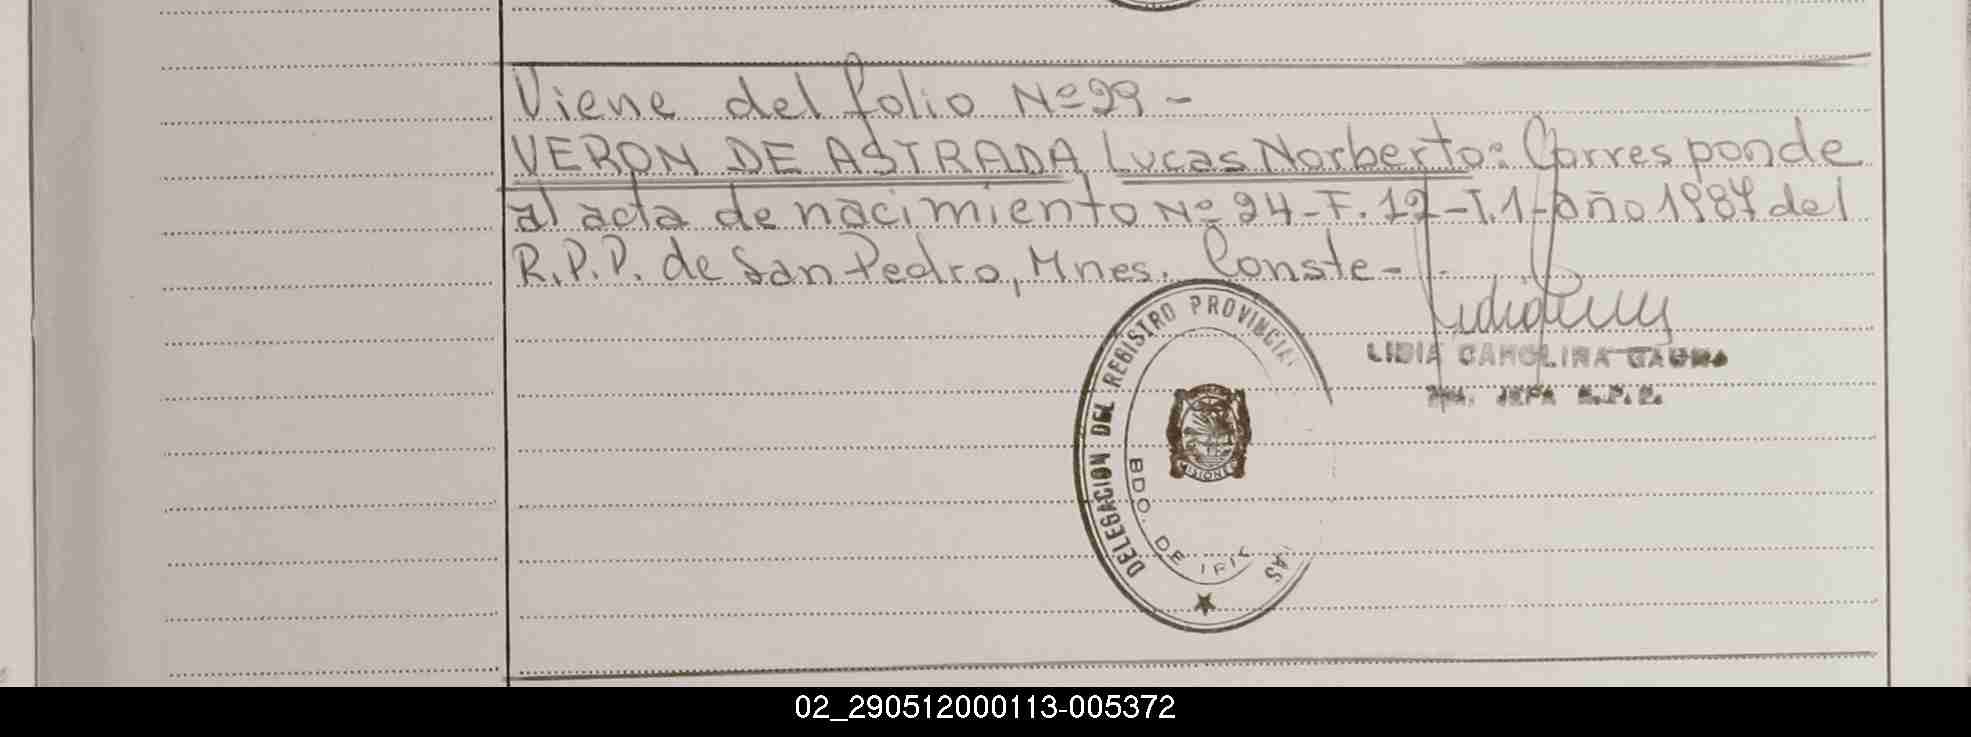 Viene del folio Nº 29 -
VERON DE ASTRADA Lucas Norberto: Corresponde
al acta de nacimiento Nº 24 - F. 12 - T. 1 - año 1987 del
R.P.P. de San Pedro, Mnes. Conste -
LIDIA CAROLINA GAUNA
JEFA R.P.P.
DELEGACION DEL REGISTRO PROVINCIAL
BDO. DE IRIG
AS
MISIONES
02_290512000113-005372